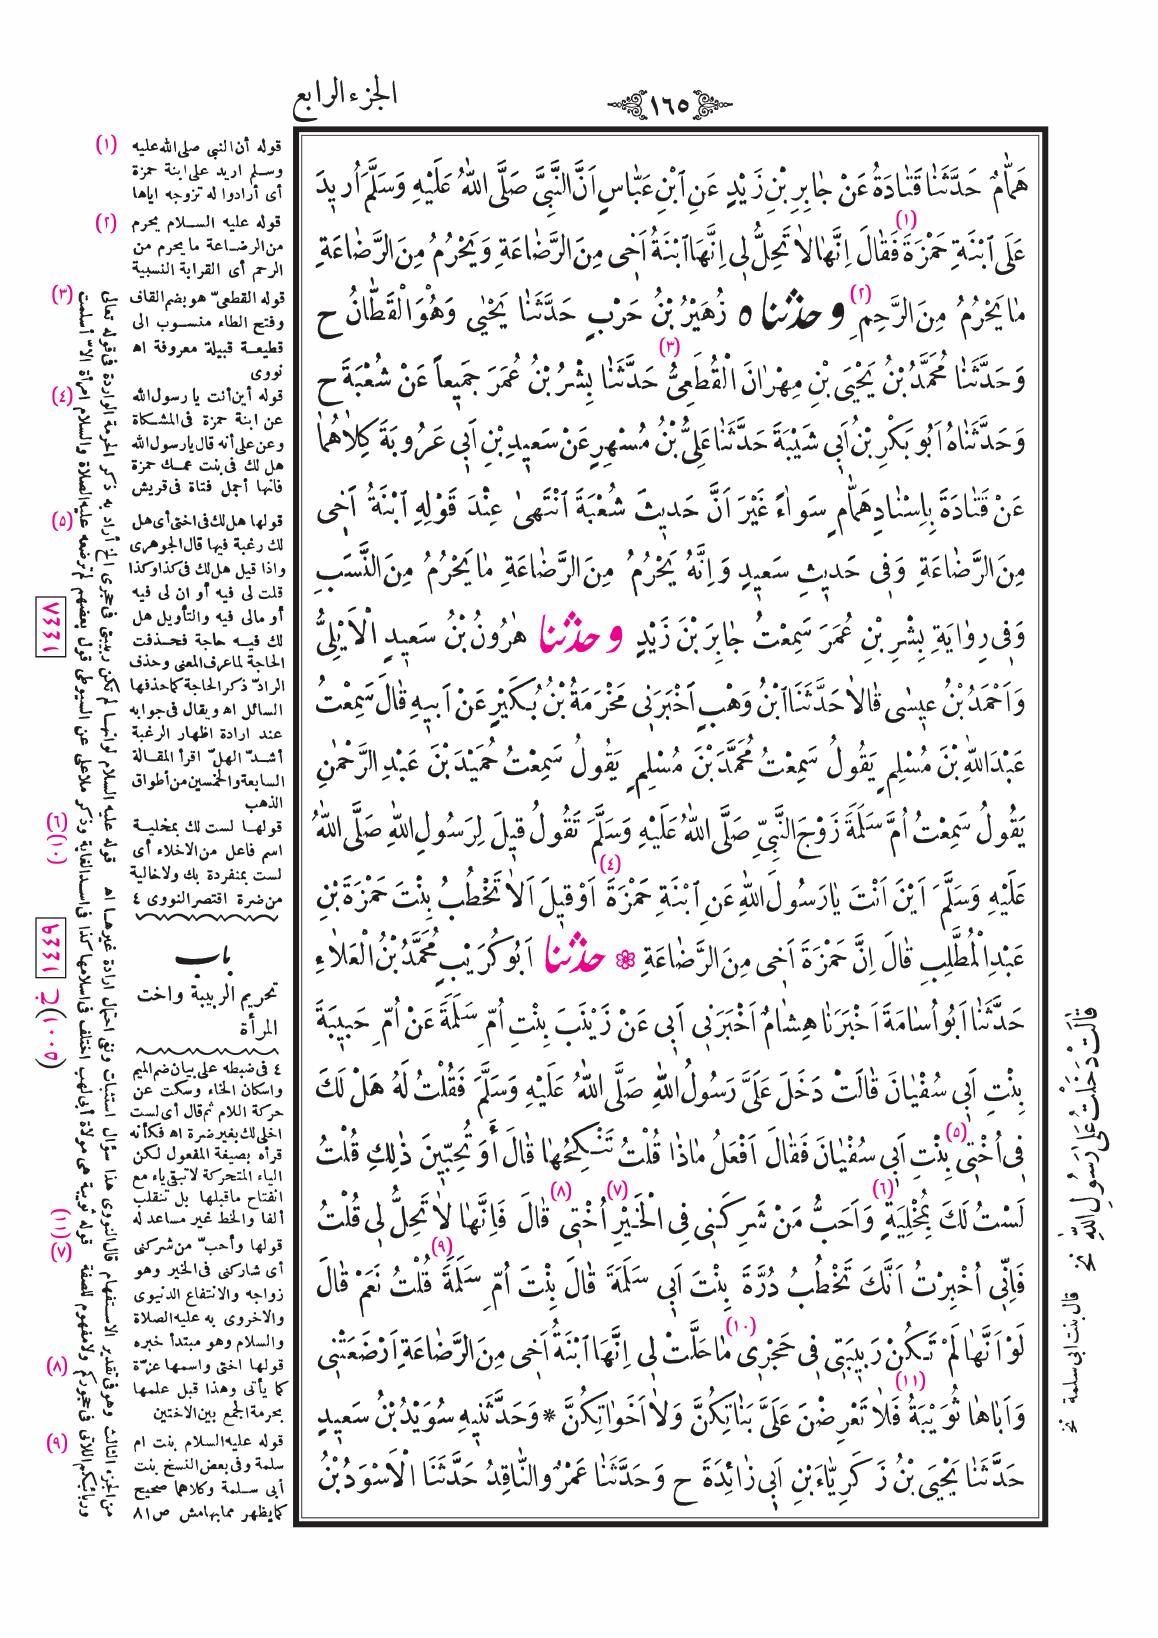 الجزء الرابع
١٦٥
هَمَّامٌ حَدَّثَنَا قَتَادَةُ عَنْ جَابِرِ بْنِ زَيْدٍ عَنِ ابْنِ عَبَّاسٍ اَنَّ النَّبِيَّ صَلَّى اللهُ عَلَيْهِ وَسَلَّمَ اُرِيدَ
عَلَى ابْنَةِ حَمْزَةَ (١) فَقَالَ اِنَّهَا لَا تَحِلُّ لِي اِنَّهَا ابْنَةُ اَخِي مِنَ الرَّضَاعَةِ وَيَحْرُمُ مِنَ الرَّضَاعَةِ
مَا يَحْرُمُ مِنَ الرَّحِمِ (٢) و حدثنا ٥ زُهَيْرُ بْنُ حَرْبٍ حَدَّثَنَا يَحْيَى وَهُوَ الْقَطَّانُ ح
وَحَدَّثَنَا مُحَمَّدُ بْنُ يَحْيَى بْنِ مِهْرَانَ الْقُطَعِيُّ (٣) حَدَّثَنَا بِشْرُ بْنُ عُمَرَ جَمِيعاً عَنْ شُعْبَةَ ح
وَحَدَّثَنَاهُ اَبُو بَكْرِ بْنُ اَبِي شَيْبَةَ حَدَّثَنَا عَلِيُّ بْنُ مُسْهِرٍ عَنْ سَعِيدِ بْنِ اَبِي عَرُوبَةَ كِلَاهُمَا
عَنْ قَتَادَةَ بِاِسْنَادِ هَمَّامٍ سَوَاءً غَيْرَ اَنَّ حَدِيثَ شُعْبَةَ انْتَهَى عِنْدَ قَوْلِهِ ابْنَةُ اَخِي
مِنَ الرَّضَاعَةِ وَفِي حَدِيثِ سَعِيدٍ وَاِنَّهُ يَحْرُمُ مِنَ الرَّضَاعَةِ مَا يَحْرُمُ مِنَ النَّسَبِ
وَفِي رِوَايَةِ بِشْرِ بْنِ عُمَرَ سَمِعْتُ جَابِرَ بْنَ زَيْدٍ و حدثنا هٰرُونُ بْنُ سَعِيدٍ الْاَيْلِيُّ
وَاَحْمَدُ بْنُ عِيسَى قَالَا حَدَّثَنَا ابْنُ وَهْبٍ اَخْبَرَنِي مَخْرَمَةُ بْنُ بُكَيْرٍ عَنْ اَبِيهِ قَالَ سَمِعْتُ
عَبْدَ اللهِ بْنَ مُسْلِمٍ يَقُولُ سَمِعْتُ مُحَمَّدَ بْنَ مُسْلِمٍ يَقُولُ سَمِعْتُ حُمَيْدَ بْنَ عَبْدِ الرَّحْمٰنِ
يَقُولُ سَمِعْتُ اُمَّ سَلَمَةَ زَوْجَ النَّبِيِّ صَلَّى اللهُ عَلَيْهِ وَسَلَّمَ تَقُولُ قِيلَ لِرَسُولِ اللهِ صَلَّى اللهُ
عَلَيْهِ وَسَلَّمَ اَيْنَ اَنْتَ يَا رَسُولَ اللهِ عَنِ ابْنَةِ حَمْزَةَ (٤) اَوْ قِيلَ اَلَا تَخْطُبُ بِنْتَ حَمْزَةَ بْنِ
عَبْدِ الْمُطَّلِبِ قَالَ اِنَّ حَمْزَةَ اَخِي مِنَ الرَّضَاعَةِ ❁ حدثنا اَبُو كُرَيْبٍ مُحَمَّدُ بْنُ الْعَلَاءِ
حَدَّثَنَا اَبُو اُسَامَةَ اَخْبَرَنَا هِشَامٌ اَخْبَرَنِي اَبِي عَنْ زَيْنَبَ بِنْتِ اُمِّ سَلَمَةَ عَنْ اُمِّ حَبِيبَةَ
بِنْتِ اَبِي سُفْيَانَ قَالَتْ دَخَلَ عَلَيَّ رَسُولُ اللهِ صَلَّى اللهُ عَلَيْهِ وَسَلَّمَ فَقُلْتُ لَهُ هَلْ لَكَ
فِي اُخْتِي (٥) بِنْتِ اَبِي سُفْيَانَ فَقَالَ اَفْعَلُ مَاذَا قُلْتُ تَنْكِحُهَا قَالَ اَوَ تُحِبِّينَ ذٰلِكِ قُلْتُ
لَسْتُ لَكَ بِمُخْلِيَةٍ (٦) وَاَحَبُّ مَنْ شَرِكَنِي فِي الْخَيْرِ (٧) اُخْتِي (٨) قَالَ فَاِنَّهَا لَا تَحِلُّ لِي قُلْتُ
فَاِنِّي اُخْبِرْتُ اَنَّكَ تَخْطُبُ دُرَّةَ بِنْتَ اَبِي سَلَمَةَ قَالَ بِنْتَ اُمِّ سَلَمَةَ (٩) قُلْتُ نَعَمْ قَالَ
لَوْ اَنَّهَا لَمْ تَكُنْ رَبِيبَتِي فِي حَجْرِي (١٠) مَا حَلَّتْ لِي اِنَّهَا ابْنَةُ اَخِي مِنَ الرَّضَاعَةِ اَرْضَعَتْنِي
وَاَبَاهَا ثُوَيْبَةُ (١١) فَلَا تَعْرِضْنَ عَلَيَّ بَنَاتِكُنَّ وَلَا اَخَوَاتِكُنَّ * وَحَدَّثَنِيهِ سُوَيْدُ بْنُ سَعِيدٍ
حَدَّثَنَا يَحْيَى بْنُ زَكَرِيَّاءَ بْنِ اَبِي زَائِدَةَ ح وَحَدَّثَنَا عَمْرٌو النَّاقِدُ حَدَّثَنَا الْاَسْوَدُ بْنُ
قَالَتْ دَخَلْتُ عَلَى رَسُولِ اللهِ نخ
قال بنت ابى سلمة نخ
(١) قوله أن النبى صلى الله عليه
وسلم اريد على ابنة حمزة
أى أرادوا له تزوجه اياها
(٢) قوله عليه السلام يحرم
من الرضاعة ما يحرم من
الرحم أى القرابة النسبية
(٣) قوله القطعىّ هو بضم القاف
وفتح الطاء منسوب الى
قطيعة قبيلة معروفة اه
نووى
(٤) قوله أين أنت يا رسول الله
عن ابنة حمزة فى المشكاة
وعن على أنه قال يا رسول الله
هل لك فى بنت عمك حمزة
فانها أجمل فتاة فى قريش
(٥) قولها هل لك فى اختى أى هل
لك رغبة فيها قال الجوهرى
واذا قيل هل لك فى كذا وكذا
قلت لى فيه أو ان لى فيه
أو مالى فيه والتأويل هل
لك فيه حاجة فحذفت
الحاجة لما عرف المعنى وحذف
الرادّ ذكر الحاجة كما حذفها
السائل اه ويقال فى جوابه
عند ارادة اظهار الرغبة
أشدّ الهلّ اقرأ المقالة
السابعة والخمسين من أطواق
الذهب
(٦) قولها لست لك بمخلية
اسم فاعل من الاخلاء أى
لست بمنفردة بك ولا خالية
من ضرة اقتصر النووى ٤
باب
تحريم الربيبة واخت
المرأة
٤ فى ضبطه على بيان ضم الميم
واسكان الخاء وسكت عن
حركة اللام ثم قال أى لست
اخلى لك بغير ضرة اه فكأنه
قرأه بصيغة المفعول لكن
الياء المتحركة لا تبقى ياء مع
انفتاح ماقبلها بل تنقلب
ألفا والخط غير مساعد له
(٧) قولها وأحبّ من شركنى
أى شاركنى فى الخير وهو
زواجه والانتفاع الدنيوى
والاخروى به عليه الصلاة
والسلام وهو مبتدأ خبره
(٨) قولها اختى واسمها عزّة
كما يأتى وهذا قبل علمها
بحرمة الجمع بين الاختين
(٩) قوله عليه السلام بنت ام
سلمة وفى بعض النسخ بنت
أبى سلمة وكلاهما صحيح
كما يظهر مما بهامش ص ٨١
من الجزء الثالث وهو فى تقدير الاستفهام قال النووى هذا سؤال استثبات ونفى احتمال ارادة غيرها اه (١٠) قوله عليه السلام لو انها لم تكن ربيبتى فى حجرى الخ أراد به ذكر الحرمة الواردة فى قوله تعالى
وربائبكم اللاتى فى حجوركم ولا مفهوم للصفة (١١) قوله ثويبة هى مولاة أبى لهب اختلف فى اسلامها كذا فى اسد الغابة وذكر ملا على عن السيوطى قول بعضهم لم ترضعه عليه الصلاة والسلام امرأة الاّ أسلمت
١٤٤٧
١٤٤٨
١٤٤٩
ج (١٠٠٥)